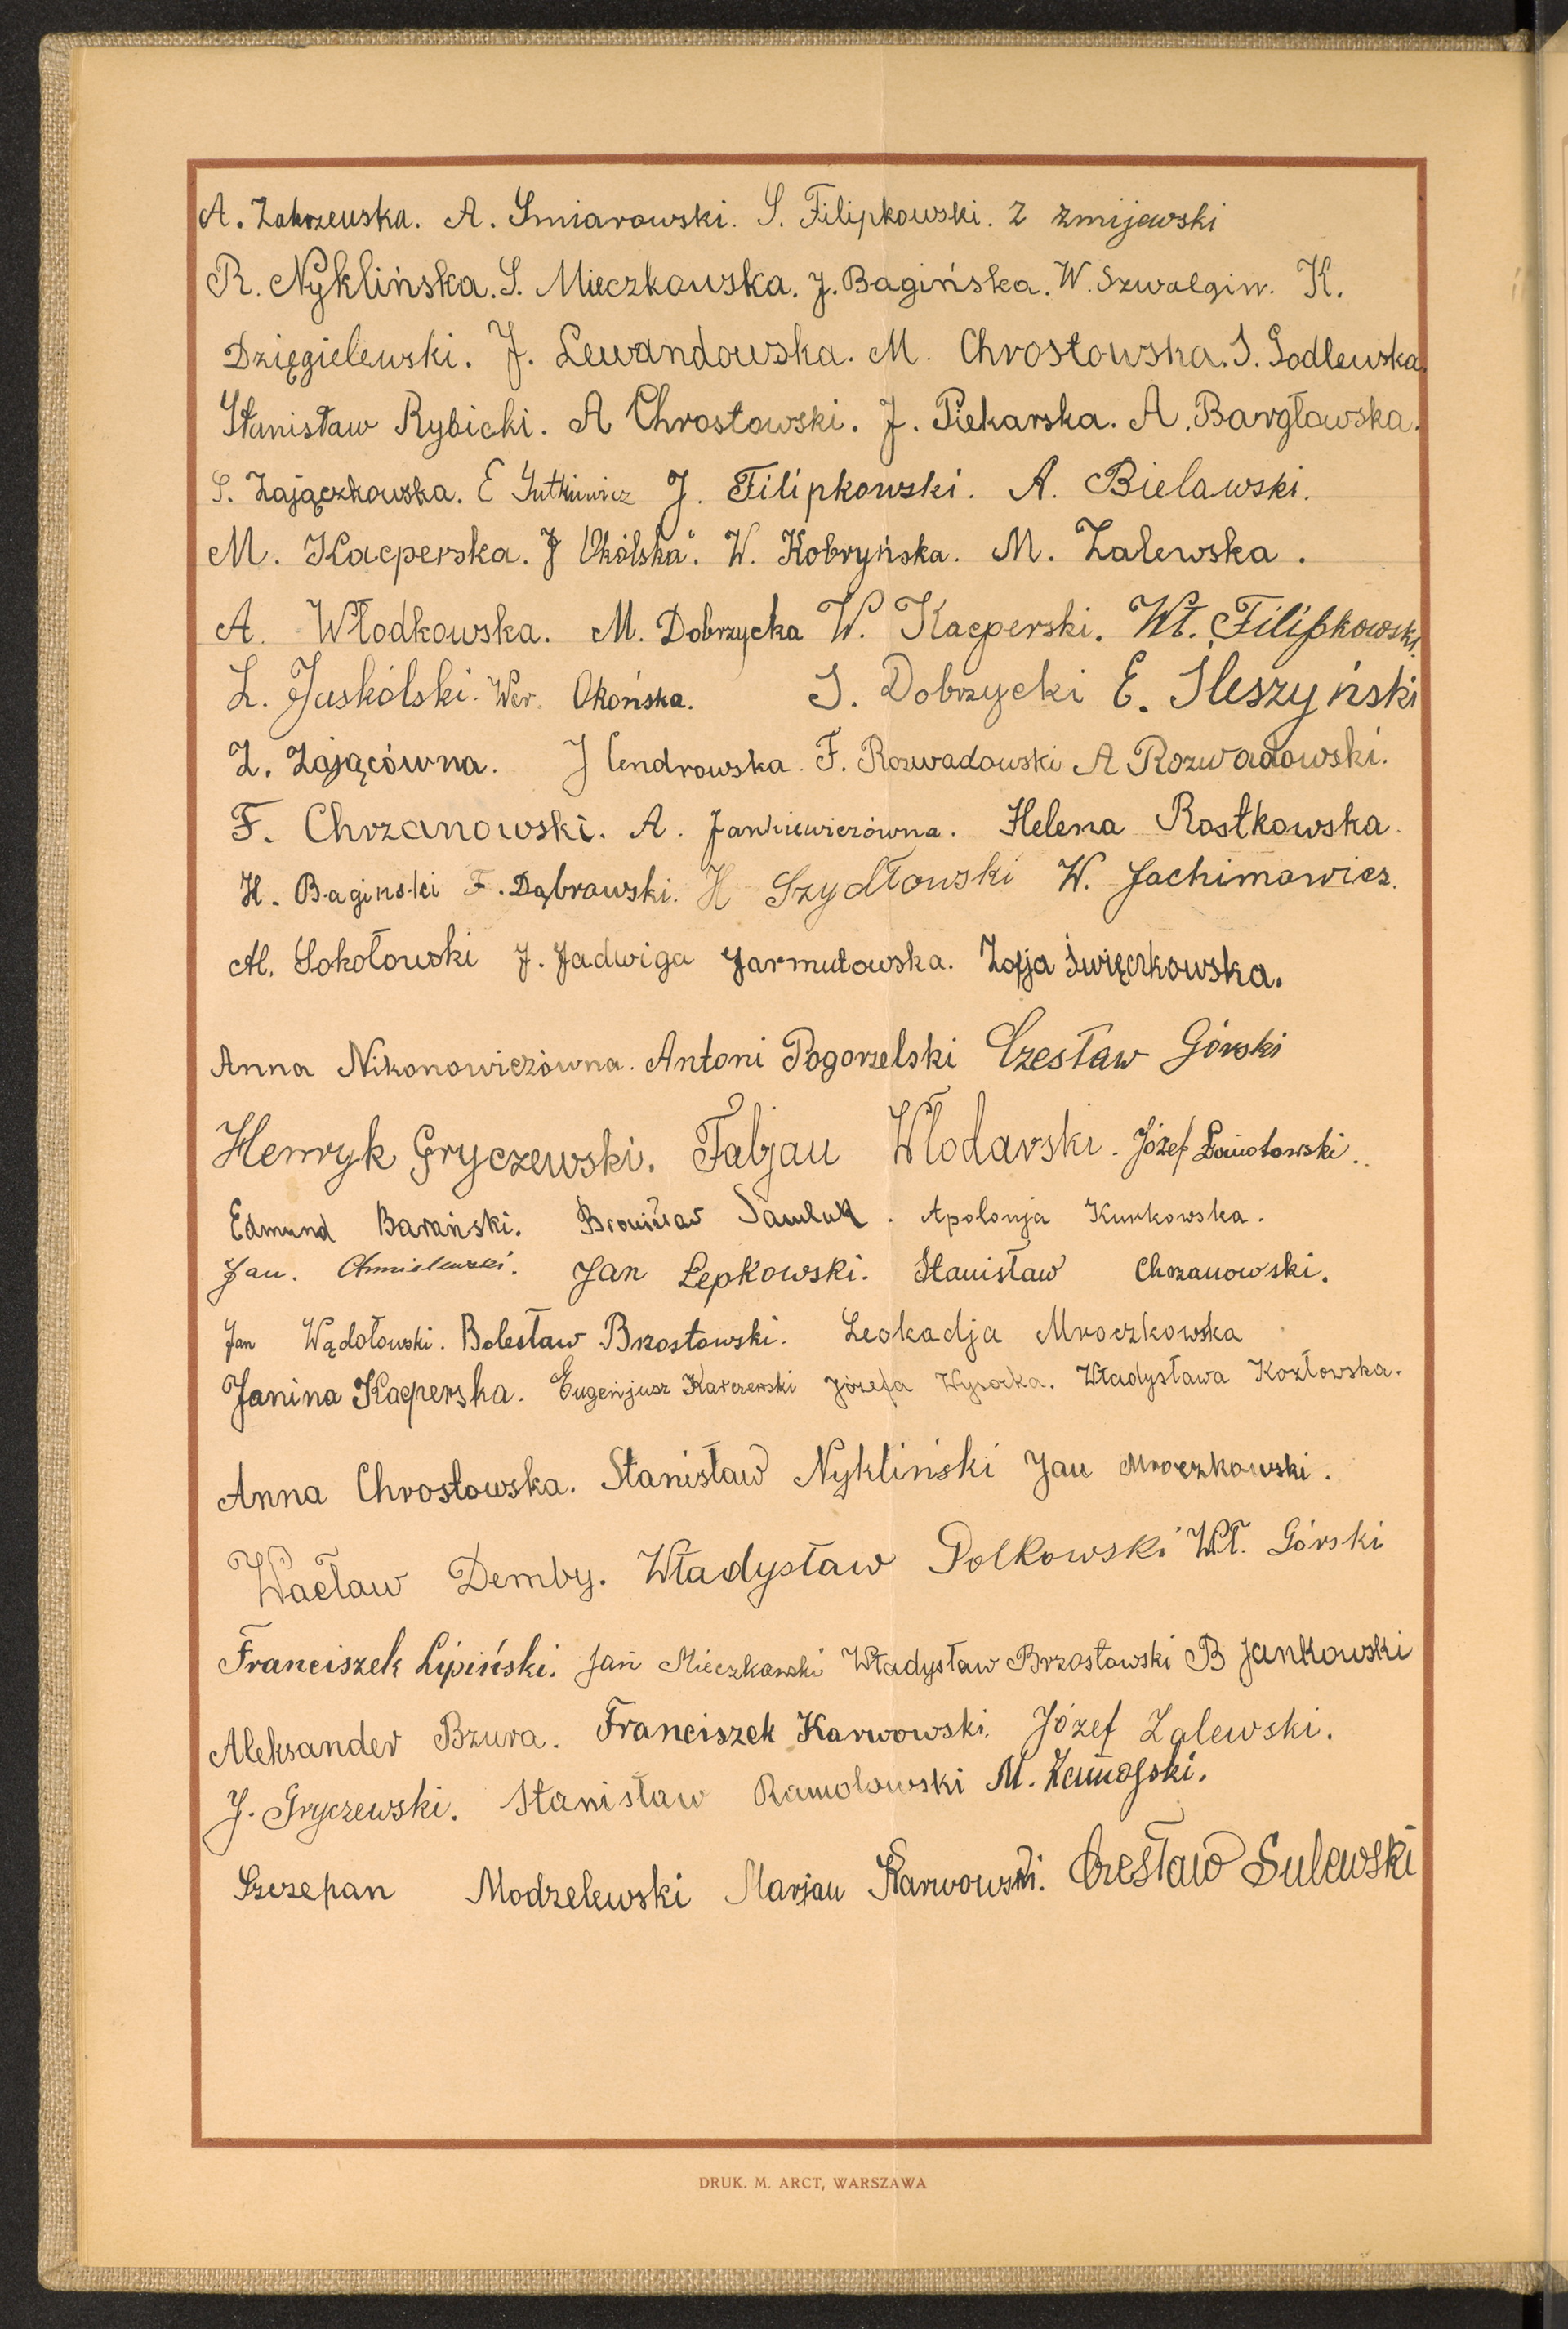 A. Zakrzewska. A. Smiarowski. S. Filipkowski. Z Żmijewski
R. Nyklińska. S. Mieczkowska. J. Bagińska. W. Szwalgin. K.
Dzięgielewski. J. Lewandowska. M. Chrostowska. S. Godlewska.
Stanisław Rybicki. A Chrostowski. J. Piekarska. A. Bargłowska.
S. Zajączkowska. E Gutkiewicz J. Filipkowski. A. Bielawski.
M. Kacperska. J Okólska. W. Kobryńska. M. Zalewska.
A. Włodkowska. M. Dobrzycka W. Kacperski. Wł. Filipkowski.
L. Jaskólski. Wer. Okońska. S. Dobrzycki E. Śleszyński
Z. Zającówna. J Cendrowska. F. Rozwadowski A Rozwadowski.
F. Chrzanowski. A. Jankiewiczówna. Helena Rostkowska.
H. Baginski F. Dąbrowski. H Szydłowski W. Jachimowicz.
M. Sokołowski J. Jadwiga Jarmutowska. Zofja Święczkowska.
Anna Nikonowiczówna. Antoni Pogorzelski Czesław Górski
Henryk Gryczewski. Fabjan Włodarski. Józef
Edmund Barański. Bronisław Pawluk. Apolonja Kurkowska.
Jan. Chmielewski. Jan Łepkowski. Stanisław Chrzanowski.
Jan Wądołowski. Bolesław Brzostowski. Leokadja Mroczkowska
Janina Kacperska. Eugenjusz Karczewski Józefa Wysocka. Władysława Kozłowska.
Anna Chrostowska. Stanisław Nykliński Jan Mroczkowski.
Wacław Demby. Władysław Polkowski Wł. Górski
Franciszek Lipiński. Jan Mieczkowski Władysław Brzostowski B Jankowski
Aleksander Bzura. Franciszek Karwowski. Józef Zalewski.
J. Gryczewski. Stanisław Ramotowski M.
Szczepan Modzelewski Marjan Karwowski. Czesław Sulewski
DRUK. M. ARCT, WARSZAWA